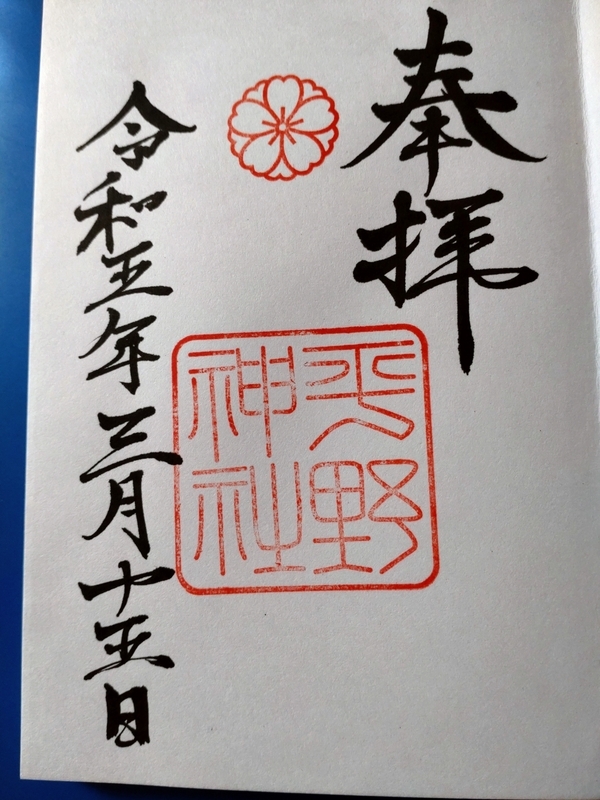 奉拝
平野
神社
令和五年三月十五日